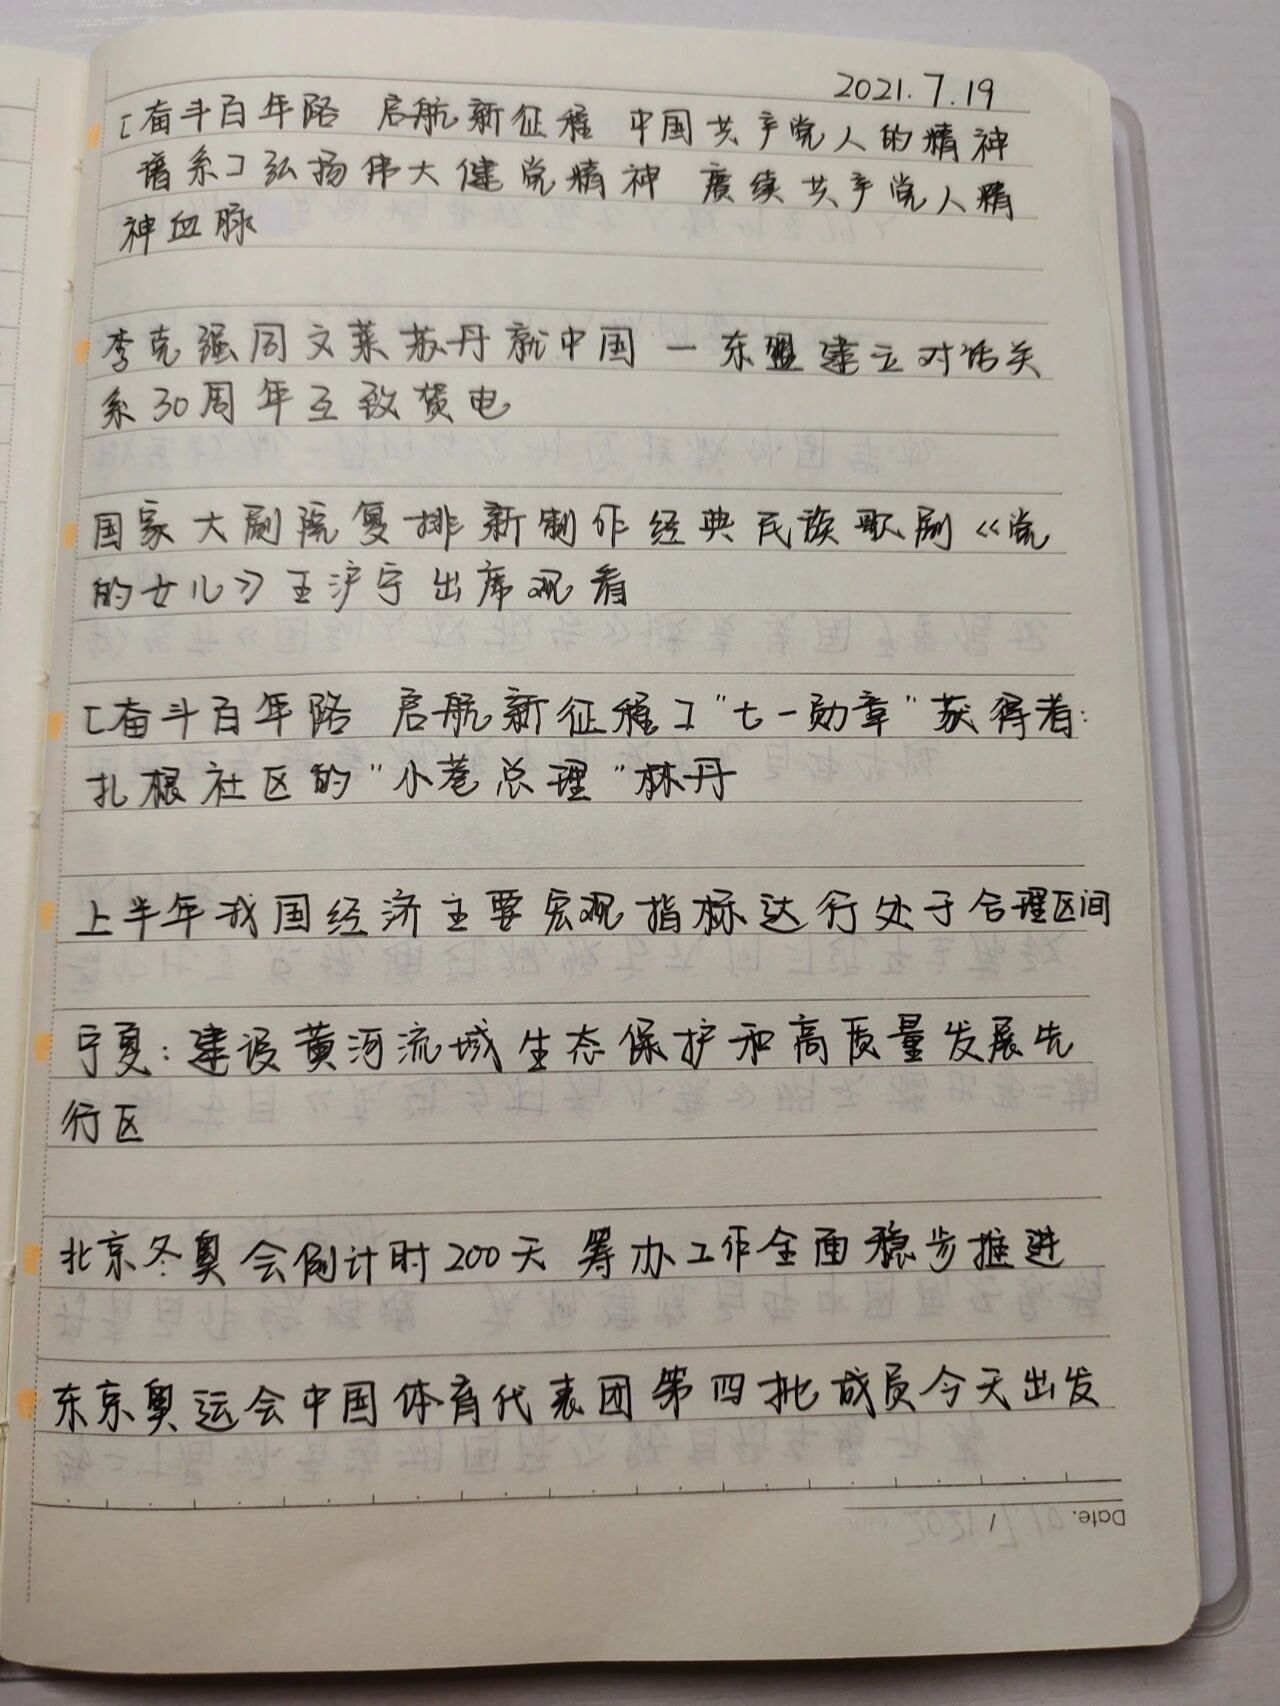 2021.7.19
[奋斗百年路 启航新征程 中国共产党人的精神
谱系]弘扬伟大健党精神 赓续共产党人精
神血脉
李克强同文莱苏丹就中国一东盟建立对话关
系30周年互致贺电
国家大剧院复排新制作经典民族歌剧《党
的女儿》王沪宁出席观看
[奋斗百年路 启航新征程]"七一勋章"获得者:
扎根社区的"小巷总理"林丹
上半年我国经济主要宏观指标达行处于合理区间
宁夏:建设黄河流域生态保护和高质量发展先
行区
北京冬奥会倒计时200天 筹办工作全面稳步推进
东京奥运会中国体育代表团第四批成员今天出发
Date. /